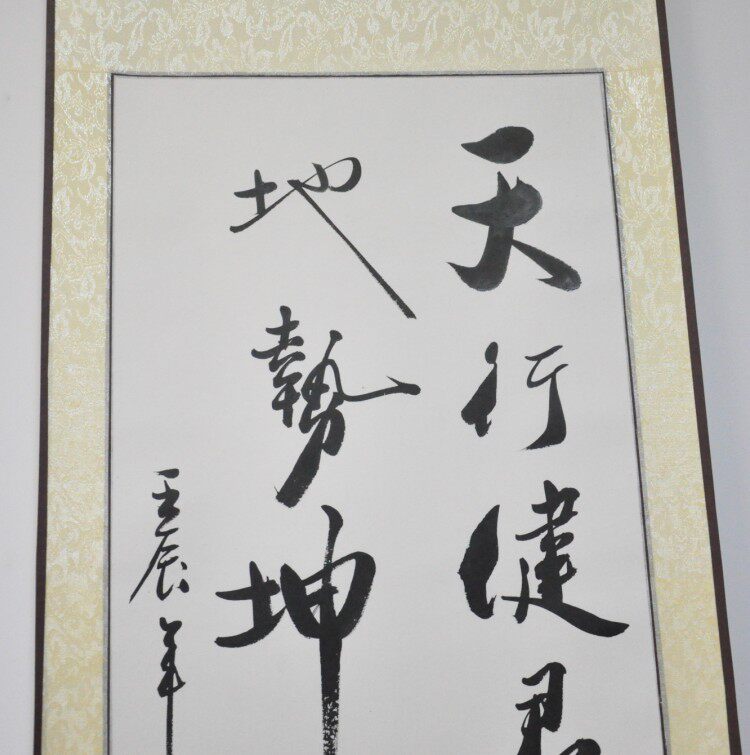 天行健君
地勢坤
壬辰年